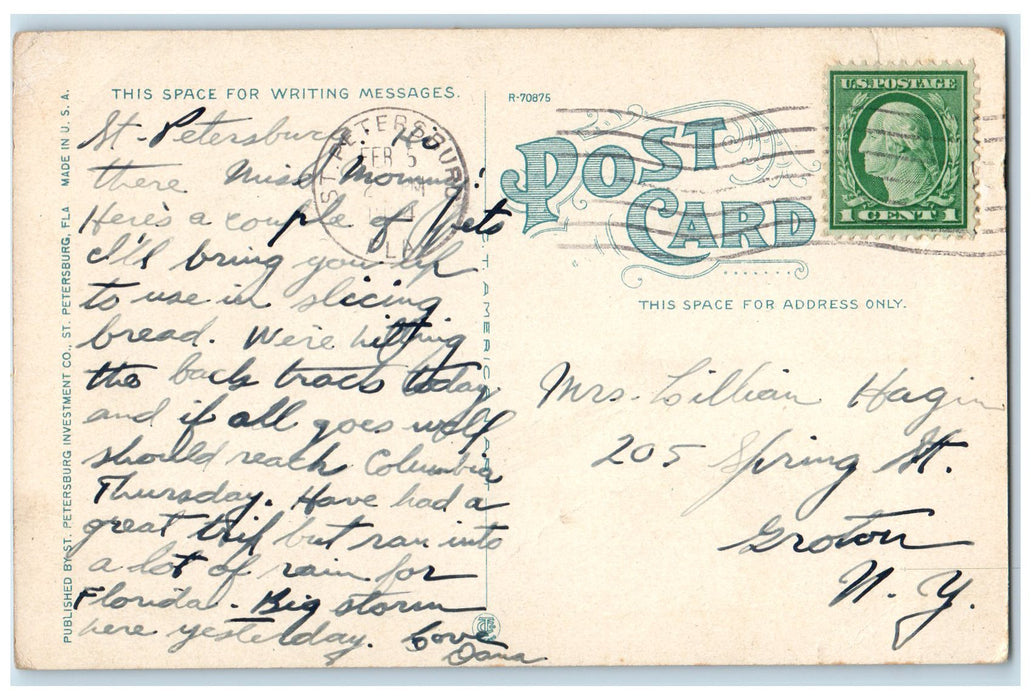 THIS SPACE FOR WRITING MESSAGES.
St. Petersburg. Ho
there Miss
Here's a couple of pets
I'll bring you up
to use in slicing
bread. We're hitting
the back track today
and if all goes well
should reach Columbia
Thursday. Have had a
great trip but ran into
a lot of rain for
Florida. Big storm
here yesterday. Love
Dana
PUBLISHED BY ST. PETERSBURG INVESTMENT CO., ST. PETERSBURG, FLA MADE IN U. S. A.
ST. PETERSBURG
FEB 5
FLA
C. T. AMERICAN ART
R-70875
POST
CARD
U.S. POSTAGE
1 CENT 1
THIS SPACE FOR ADDRESS ONLY.
Mrs. Lillian Hagin
205 Spring St.
Groton
N. Y.